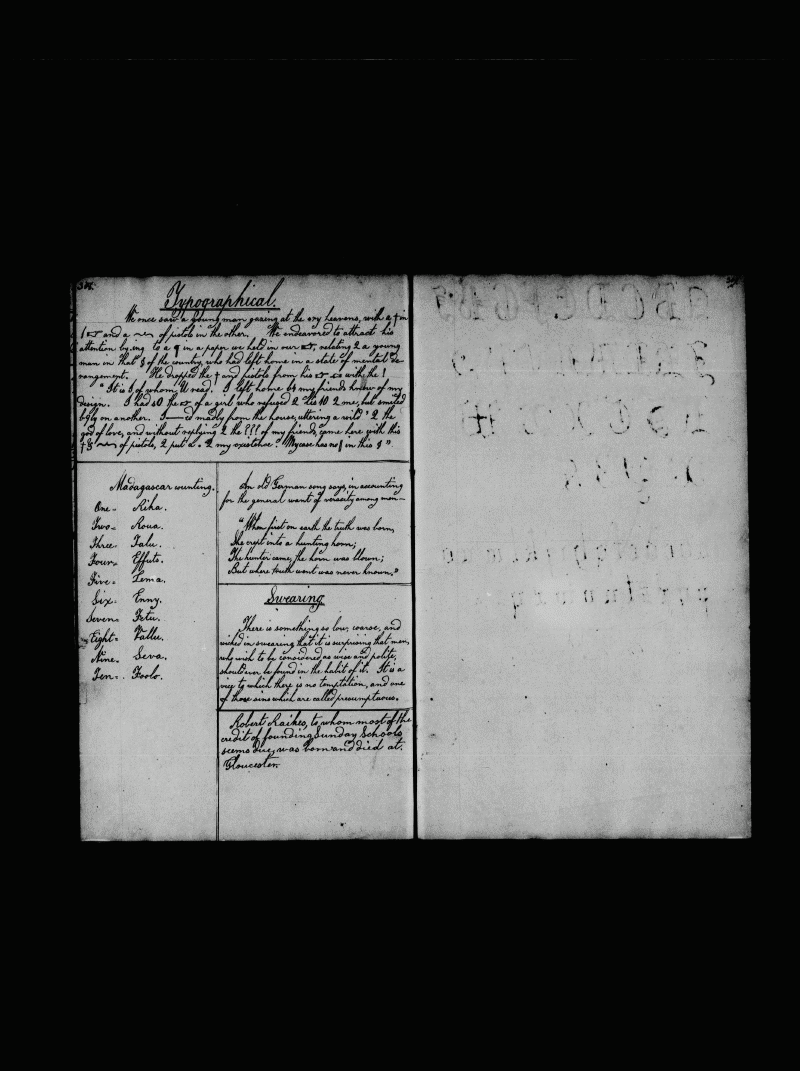 Typographical.
We once saw a young man gazing at the *ry heavens, with a † in
1 ☞ and a ~~ of pistols in the other. We endeavored to attract his
attention by .ing to a ¶ in a paper we held in our ☞, relating 2 a young
man in that § of the country, who had left home in a state of mental de-
rangement. He dropped the † and pistols from his ☞ ☞ with the !
"It is I of whom U read. I left home b4 my friends knew of my
design. I had s0 the ☞ of a girl who refused 2 lis10 2 me, but smiled
b9ly on another. I —— d madly from the house, uttering a wild ? 2 the
god of love, and without replying 2 the ? ? ? of my friends, came here with this
† & ~~ of pistols, 2 put a . 2 my existence. My case has no || in this §"
Madagascar counting.
One - Riha.
Two - Roua.
Three - Talu.
Four - Effuts.
Five - Lema.
Six - Enny.
Seven - Fetu.
Eight - Vallu.
Nine - Seva.
Ten - Foolo.
An old German song says, in accounting
for the general want of veracity among men—
"When first on earth the truth was born,
She crept into a hunting horn;
The hunter came, the horn was blown;
But where truth went was never known."
Swearing
There is something so low, coarse, and
wicked in swearing that it is surprising that men,
who wish to be considered as wise and polite,
should ever be found in the habit of it. It is a
vice to which there is no temptation, and one
of those sins which are called presumptuous.
Robert Raikes, to whom most of the
credit of founding Sunday Schools
seems due, was born and died at
Gloucester.